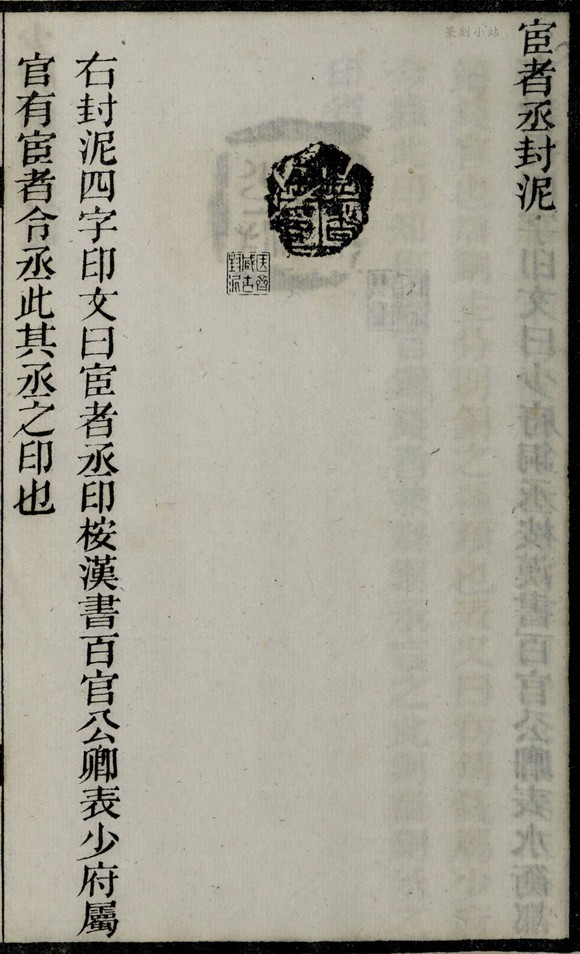 篆刻小站
宦者丞封泥
宦者丞印
右封泥四字印文曰宦者丞印桉漢書百官公卿表少府屬
官有宦者令丞此其丞之印也